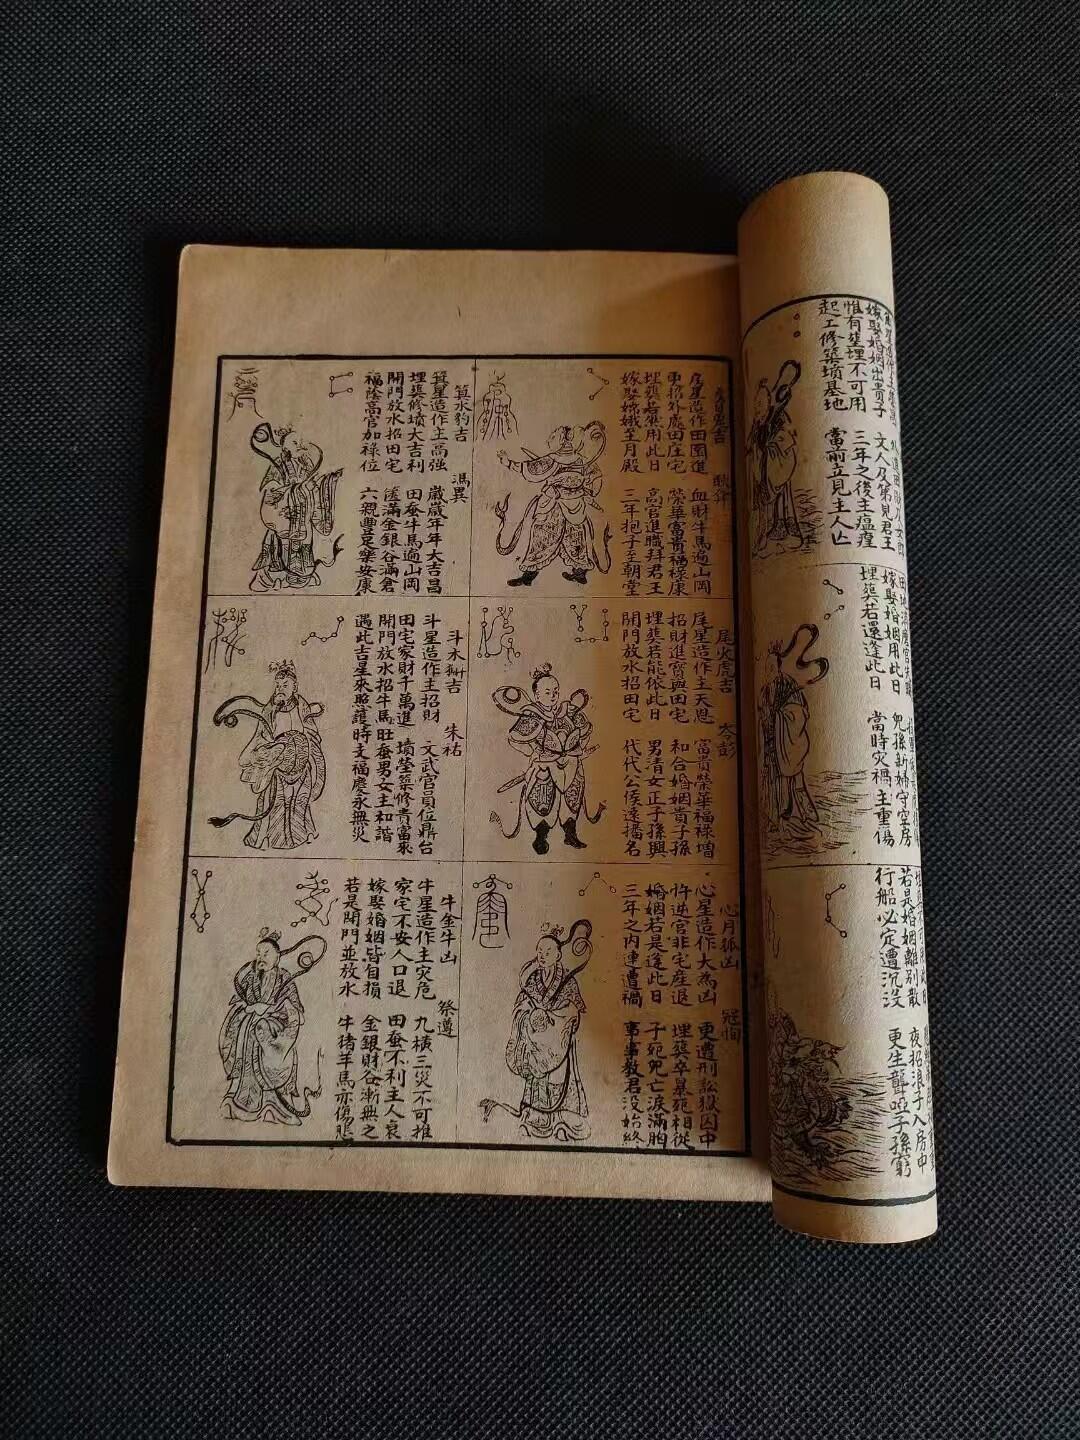 惟有埋葬不可用
三年之後主瘟㾮
起工修築墳基地
當前立見主人亡
嫁娶婚姻用此日
兒孫新婦守空房
埋葬若還逢此日
當時灾禍主重傷
若是婚姻離别散
夜招浪子入房中
行船必定遭沉没
更生聾啞子孫窮
房星造作田園進
血財牛馬遍山岡
更招外處田庄宅
榮華富貴福祿康
埋葬若然用此日
高官進職拜君王
嫁娶嫦娥至月殿
三年抱子至朝堂
尾火虎吉
岑彭
尾星造作主天恩
富貴榮華福祿增
招財進寶與田宅
和合婚姻貴子孫
埋葬若能依此日
男清女正子孫興
開門放水招田宅
代代公侯遠播名
心月狐凶
冦恂
心星造作大為凶
更遭刑訟獄囚中
忤逆官非宅産退
埋葬卒暴死相從
婚姻若是逢此日
子死兒亡淚滿胸
三年之内連遭禍
事事教君没始終
箕水豹吉
馮異
箕星造作主高強
歲歲年年大吉昌
埋葬修墳大吉利
田蚕牛馬遍山岡
開門放水招田宅
篋滿金銀谷滿倉
福蔭高官加祿位
六親豐足樂安康
斗木獬吉
朱祐
斗星造作主招財
文武官員位鼎台
田宅家財千萬進
墳塋築修貴富來
開門放水招牛馬
旺蚕男女主和諧
遇此吉星來照護
時支福慶永無災
牛金牛凶
祭遵
牛星造作主灾危
九橫三災不可推
家宅不安人口退
田蚕不利主人衰
嫁娶婚姻皆自損
金銀財谷漸無之
若是開門並放水
牛猪羊馬亦傷悲